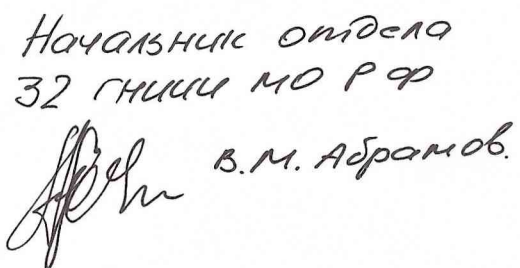 Начальник отдела
32 ГНИИИ МО РФ
В.М. Абрамов.